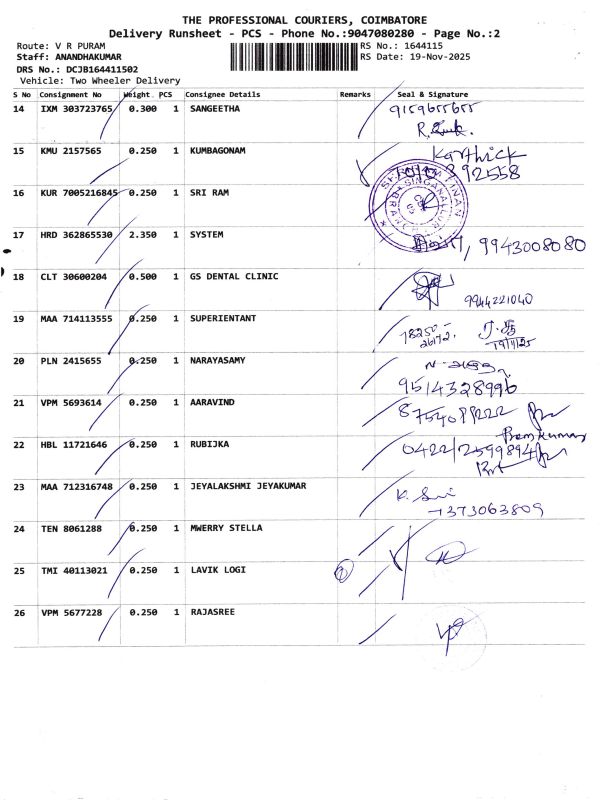 THE PROFESSIONAL COURIERS, COIMBATORE
Delivery Runsheet - PCS - Phone No.:9047080280 - Page No.:2
Route: V R PURAM RS No.: 1644115
Staff: ANANDHAKUMAR RS Date: 19-Nov-2025
DRS No.: DCJB164411502
Vehicle: Two Wheeler Delivery
S No Consignment No Weight PCS Consignee Details Remarks Seal & Signature
14 IXM 303723765 0.300 1 SANGEETHA 9159655655
15 KMU 2157565 0.250 1 KUMBAGONAM Karthick
92558
16 KUR 7005216845 0.250 1 SRI RAM
17 HRD 362865530 2.350 1 SYSTEM 9943008080
18 CLT 30600204 0.500 1 GS DENTAL CLINIC
9944221040
19 MAA 714113555 0.250 1 SUPERIENTANT
18250-
26172.
19/11/25
20 PLN 2415655 0.250 1 NARAYASAMY
9514328996
21 VPM 5693614 0.250 1 AARAVIND
Premkumar
22 HBL 11721646 0.250 1 RUBIJKA 0422/2599894
23 MAA 712316748 0.250 1 JEYALAKSHMI JEYAKUMAR
7373063809
24 TEN 8061288 0.250 1 MWERRY STELLA
25 TMI 40113021 0.250 1 LAVIK LOGI
26 VPM 5677228 0.250 1 RAJASREE